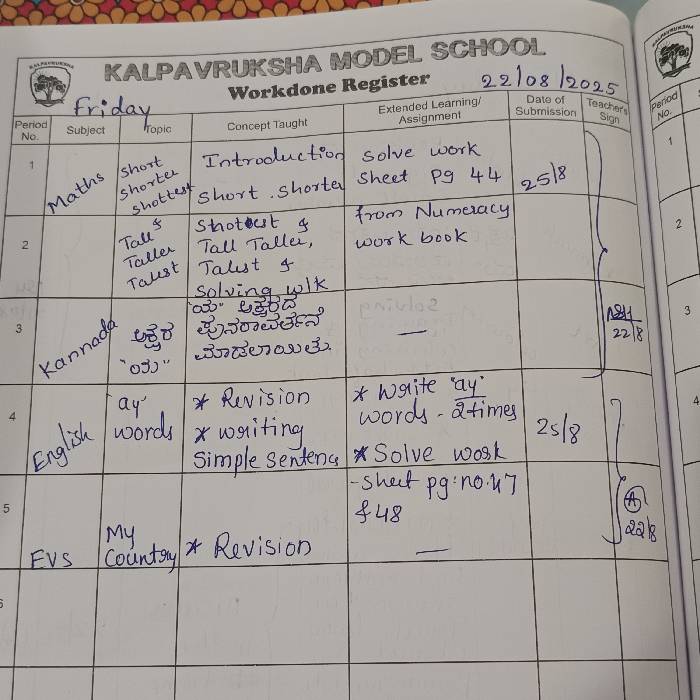 KALPAVRUKSHA MODEL SCHOOL
Workdone Register
Friday
22/08/2025
Period No.
Subject
Topic
Concept Taught
Extended Learning/ Assignment
Date of Submission
Teacher's Sign
1
Maths
Short
Shorter
Shottest
Introduction
Short. Shorter
Solve work
Sheet Pg 44
25/8
2
Tall &
Taller
Talest
Shotest &
Tall Taller,
Talest &
Solving w/k
from Numeracy
work book
3
Kannada
ಅಕ್ಷರ
"ಯ"
"ಯ" ಅಕ್ಷರದ
ಪುನರಾವರ್ತನೆ
ಮಾಡಲಾಯಿತು.
—
22/8
4
English
ay'
words
* Revision
* writing
Simple sentence
* Write 'ay'
words - 2times
* Solve work
25/8
5
EVS
My
Country
* Revision
- sheet pg: no. 47
& 48
—
22/8
Period No.
1
2
3
4